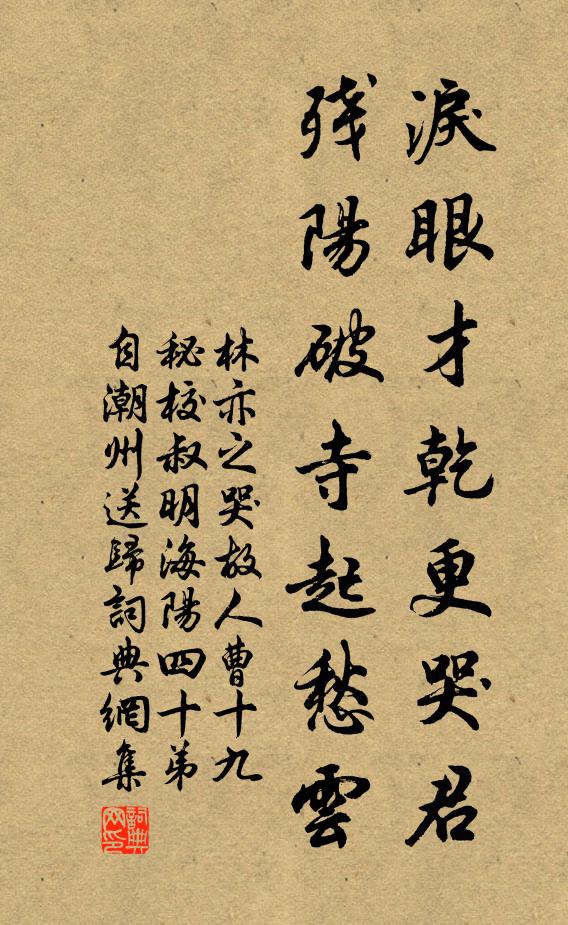 淚眼才乾更哭君
残陽破寺起愁雲
林亦之哭故人曹十九
秘校叔明海陽四十弟
自潮州送歸詞典網集
詞典网印